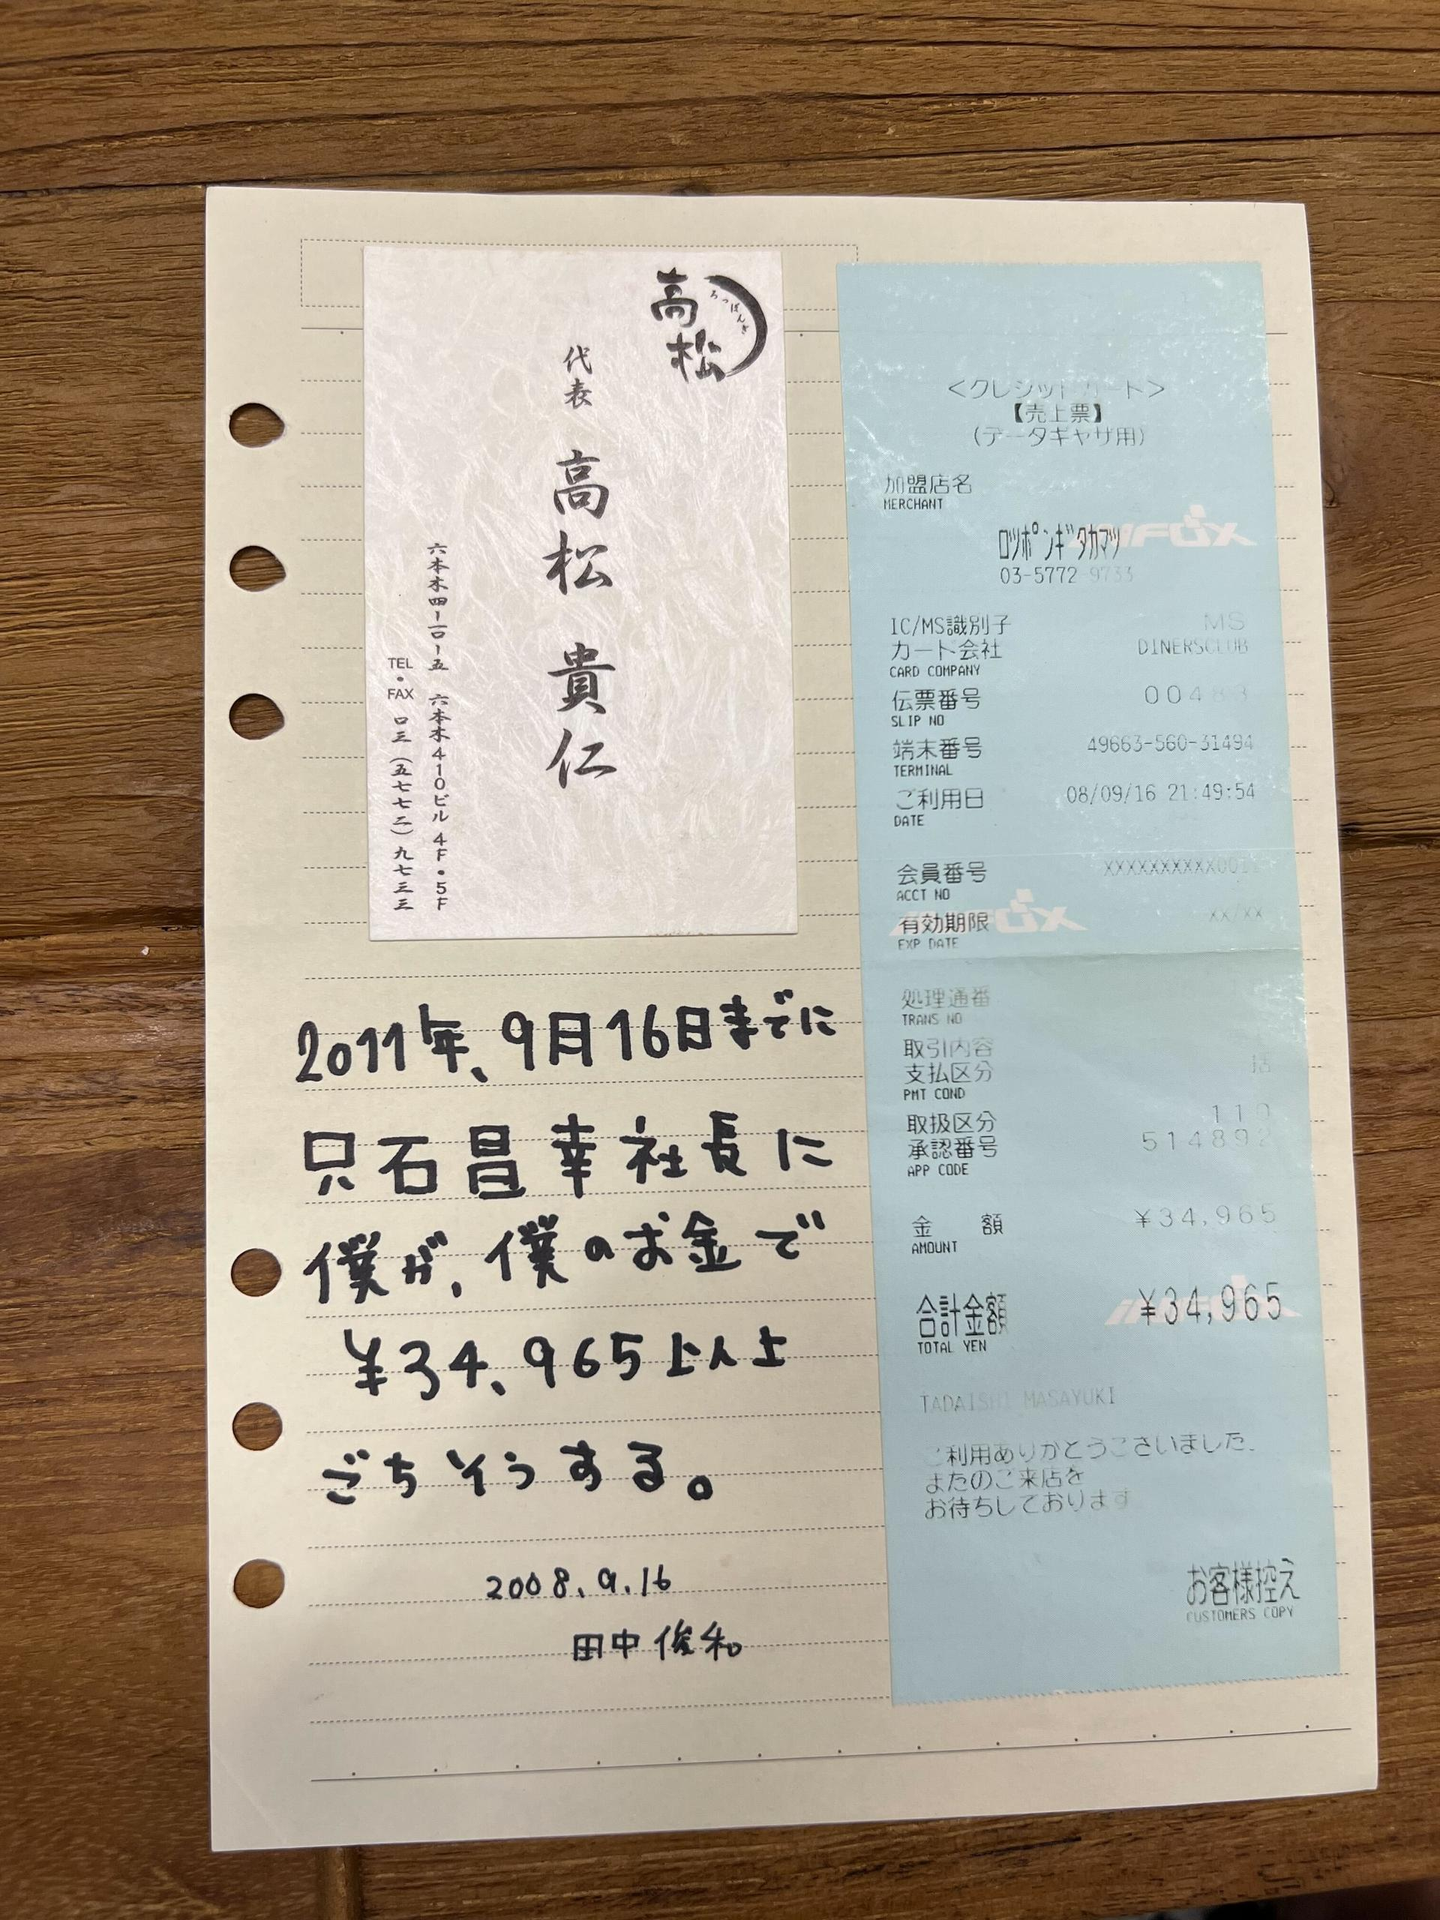 高松
ろっぽんぎ
代表 高松 貴仁
六本木四-一〇-五 六本木410ビル 4F・5F
TEL・FAX 〇三(五七七二)九七三三
2011年、9月16日までに
只石昌幸社長に
僕が、僕のお金で
¥34,965以上
ごちそうする。
2008.9.16
田中俊和
<クレジットカード>
【売上票】
(データギャザ用)
加盟店名
MERCHANT
INFOX
ロツポンギタカマツ
03-5772-9733
IC/MS識別子 MS
カード会社 DINERSCLUB
CARD COMPANY
伝票番号 00483
SLIP NO
端末番号 49663-560-31494
TERMINAL
ご利用日 08/09/16 21:49:54
DATE
会員番号
ACCT NO
有効期限 XX/XX
EXP DATE
処理通番
TRANS NO
取引内容
支払区分
PMT COND
取扱区分 110
承認番号
APP CODE
金 額 ¥34,965
AMOUNT
合計金額 ¥34,965
TOTAL YEN
TADAISHI MASAYUKI
ご利用ありがとうございました。
またのご来店を
お待ちしております
お客様控え
CUSTOMERS COPY